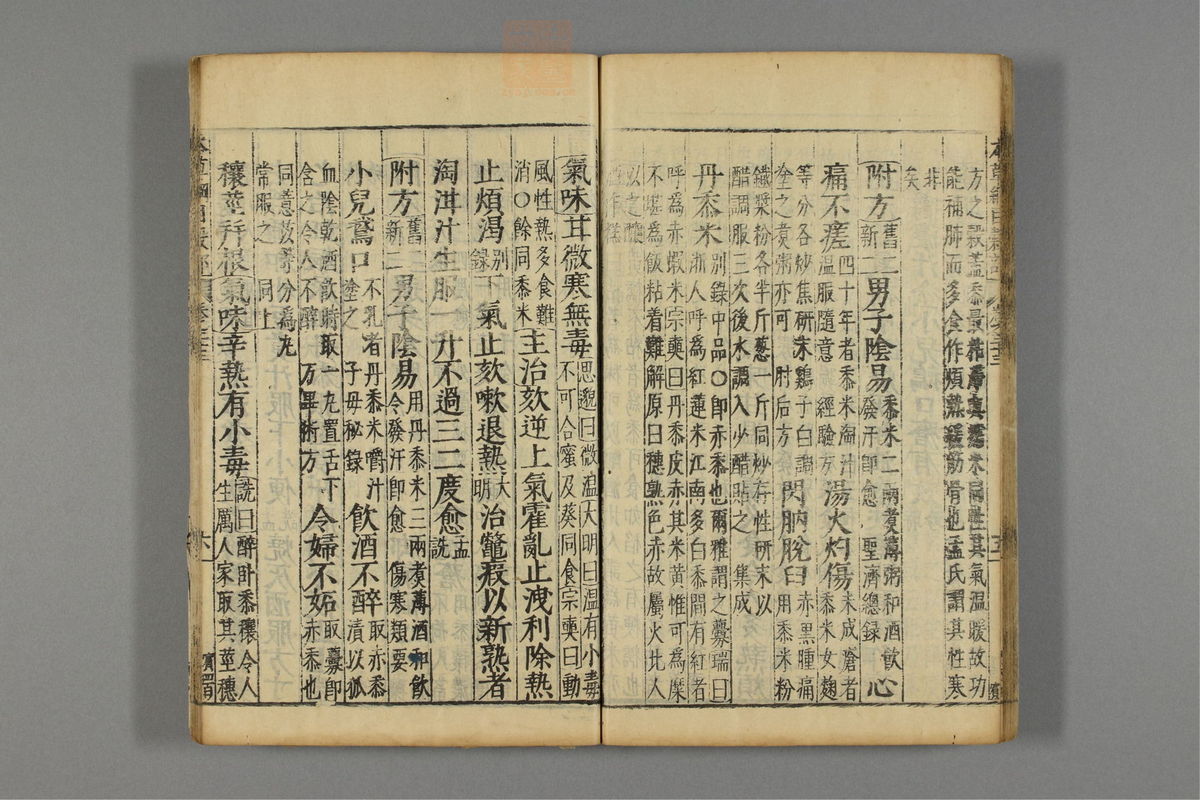 方之穀蓋黍最
能補肺而多食作煩熱緩筋骨也孟氏謂其性寒
非
矣
附方舊二新二男子陰易黍米二兩煮薄粥和酒飲發汗即愈聖濟總錄心
痛不瘥四十年者黍米淘汁溫服隨意經驗方湯火灼傷未成瘡者黍米女麴
等分各炒焦研末雞子白調塗之煮粥亦可肘后方閃肭脫臼赤黑腫痛用黍米粉
鐵漿粉各半斤葱一斤同炒存性研末以醋調服三次後水調入少醋貼之集成
丹黍米別錄中品○即赤黍也爾雅謂之虋瑞曰浙人呼為紅蓮米江南多白黍間有紅者
呼為赤蝦米宗奭曰丹黍皮赤其米黃惟可為糜
不堪為飯粘着難解原曰穗熟色赤故屬火北人
以之釀酒作糕
氣味甘微寒無毒思邈曰微溫大明曰溫有小毒不可合蜜及葵同食宗奭曰動
風性熱多食難消○餘同黍米主治欬逆上氣霍亂止洩利除熱
止煩渴別錄下氣止欬嗽退熱大明治鼈瘕以新熟者
淘泔汁生服一升不過三二度愈孟詵
附方舊二新二男子陰易用丹黍米三兩煮薄酒和飲令發汗即愈傷寒類要
小兒鵞口不乳者丹黍米嚼汁塗之子毋秘錄飲酒不醉取赤黍漬以狐
血陰乾酒飲時取一丸置舌下含之令人不醉万畢術方令婦不妬取虋即赤黍也
同薏苡等分為丸常服之同上
穰莖并根氣味辛熱有小毒詵曰醉卧黍穰令人生厲人家取其莖穗